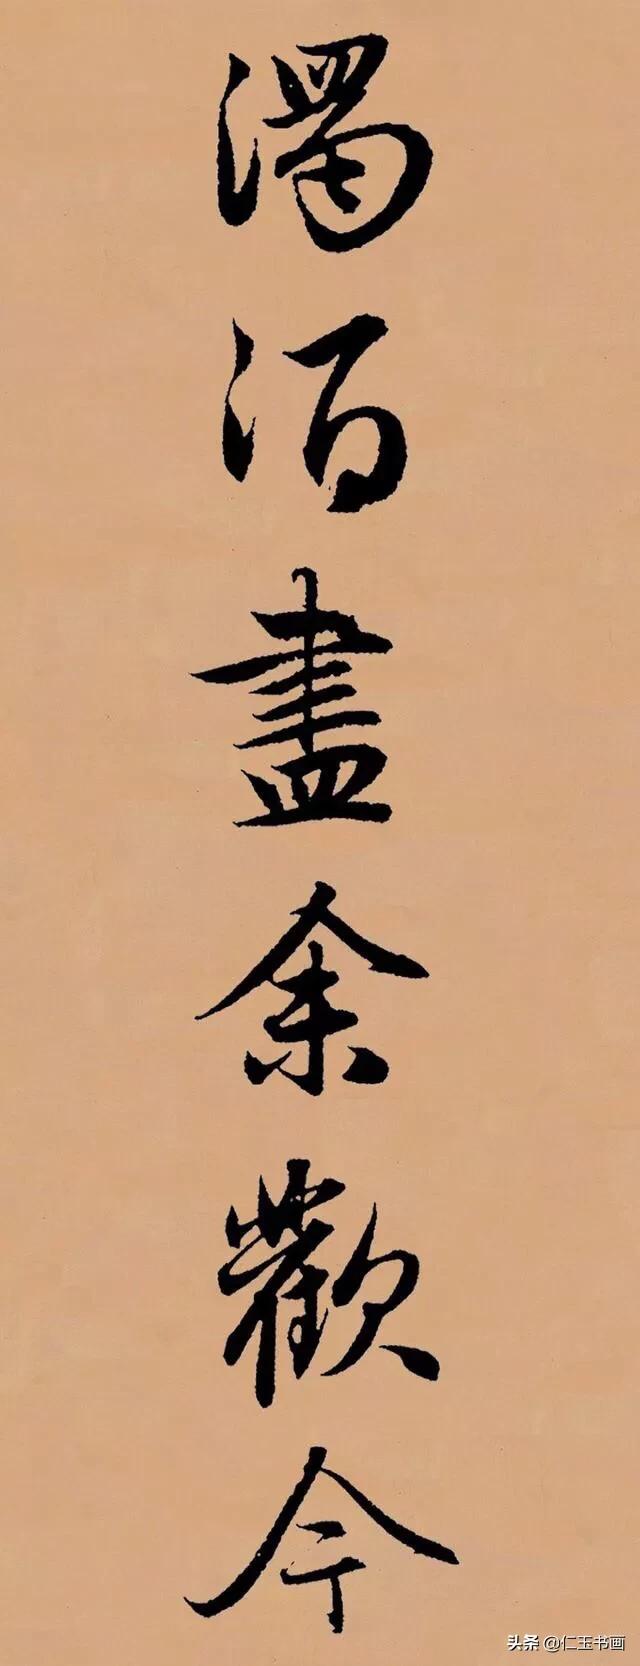 濁酒盡余歡今
头条 @仁玉书画